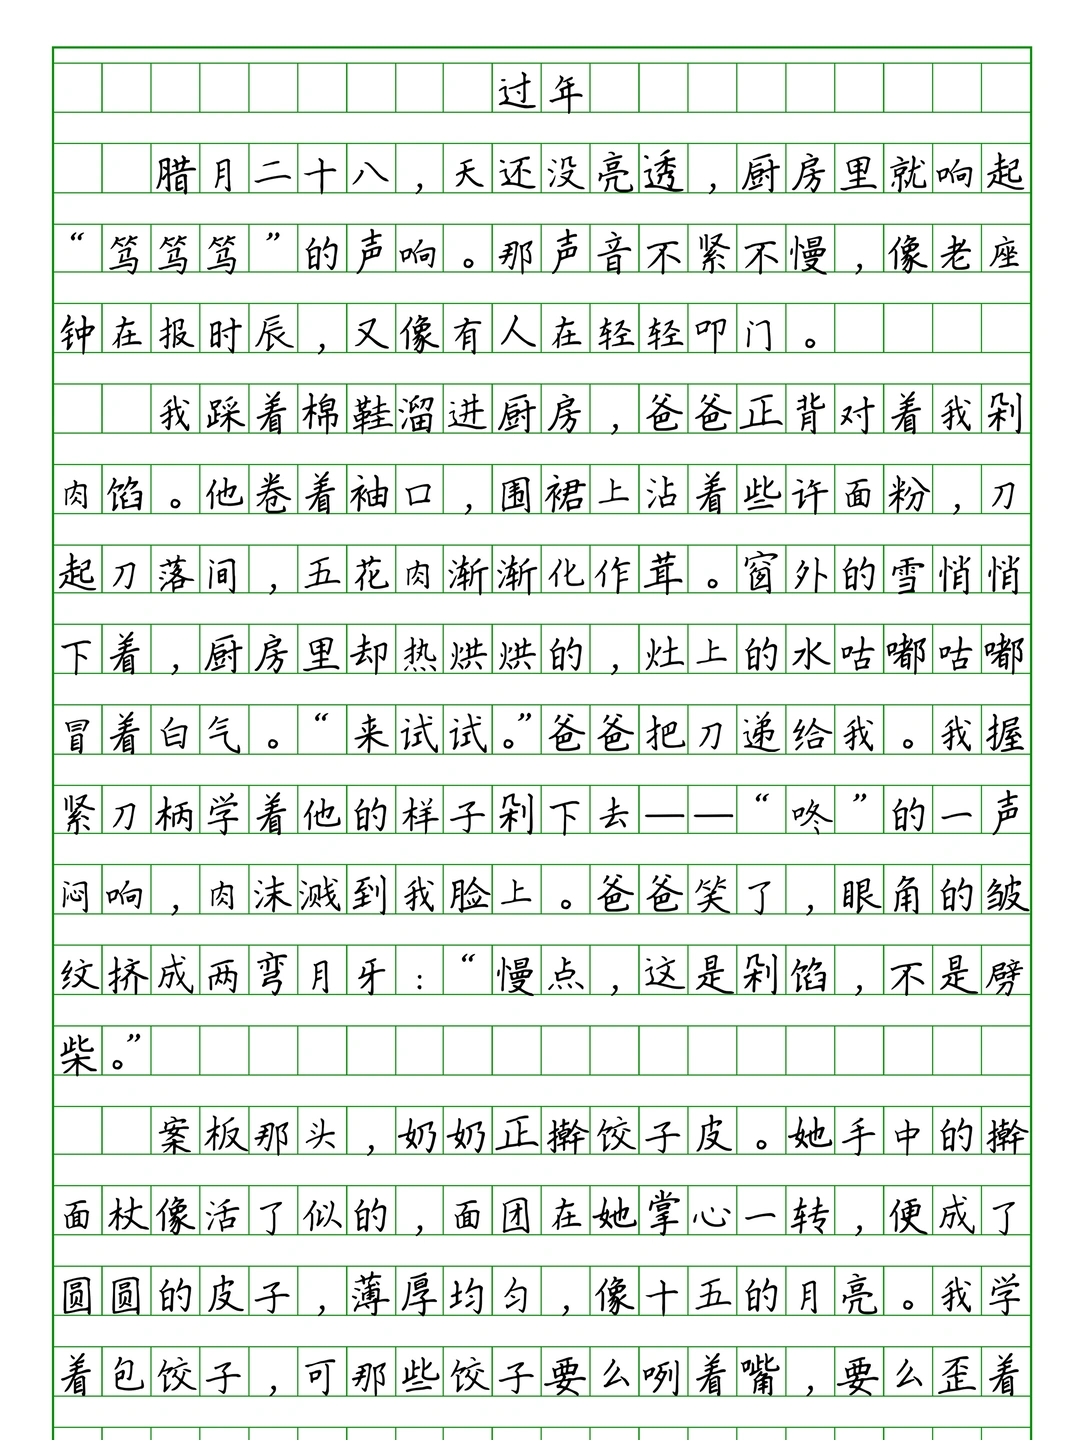 过年
腊月二十八，天还没亮透，厨房里就响起
“笃笃笃”的声响。那声音不紧不慢，像老座
钟在报时辰，又像有人在轻轻叩门。
我踩着棉鞋溜进厨房，爸爸正背对着我剁
肉馅。他卷着袖口，围裙上沾着些许面粉，刀
起刀落间，五花肉渐渐化作茸。窗外的雪悄悄
下着，厨房里却热烘烘的，灶上的水咕嘟咕嘟
冒着白气。“来试试。”爸爸把刀递给我。我握
紧刀柄学着他的样子剁下去——“咚”的一声
闷响，肉沫溅到我脸上。爸爸笑了，眼角的皱
纹挤成两弯月牙：“慢点，这是剁馅，不是劈
柴。”
案板那头，奶奶正擀饺子皮。她手中的擀
面杖像活了似的，面团在她掌心一转，便成了
圆圆的皮子，薄厚均匀，像十五的月亮。我学
着包饺子，可那些饺子要么咧着嘴，要么歪着